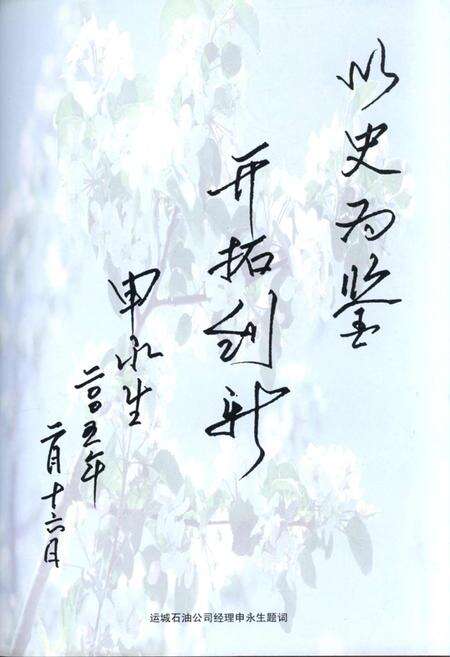 以史为鉴
开拓创新
申永生
二00五年
二月十六日
运城石油公司经理申永生题词